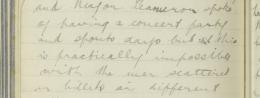 and Major Cameron spoke
of having a concert party
and sports days but at this
is practically impossible
with the men scattered
in billets in different